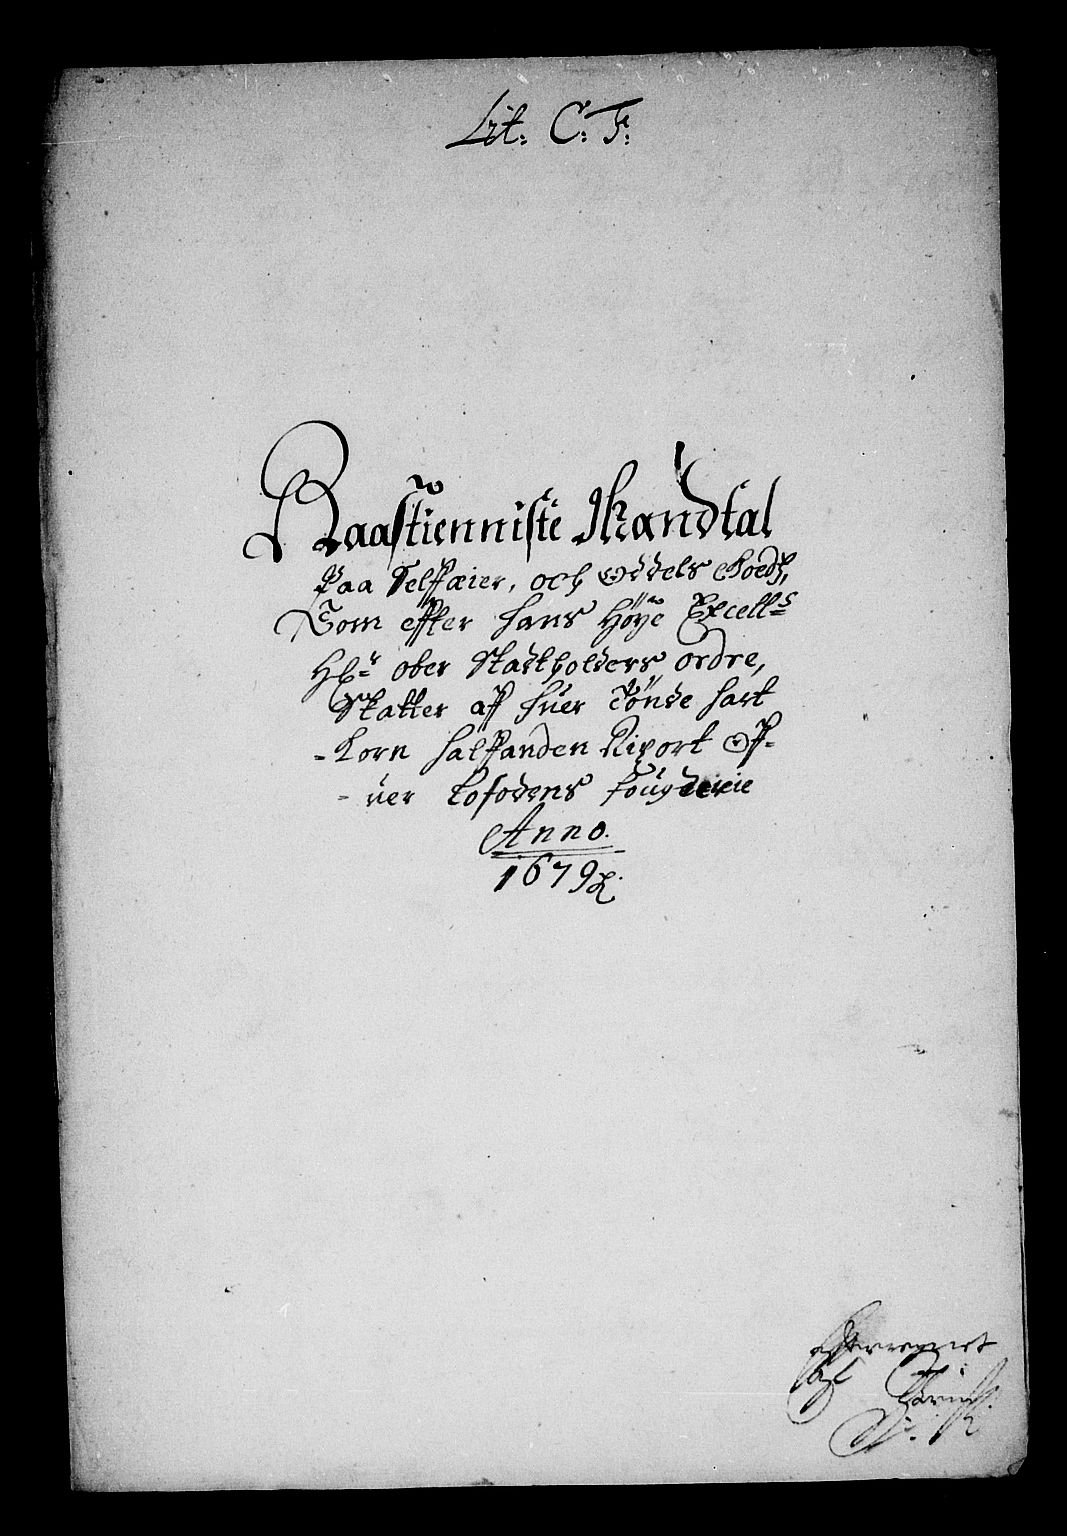 Lit: C: F:
Raastienniste Mandtal
Paa Selffæier, och Oddels Goedtz,
Som effter hans Höye Excell:s
Hr: ober Stadtholders ordre,
Skatter aff huer Tönde hart
- Korn halffanden Rixort Off-
- uer Lofodens fougderie
Anno.
1679